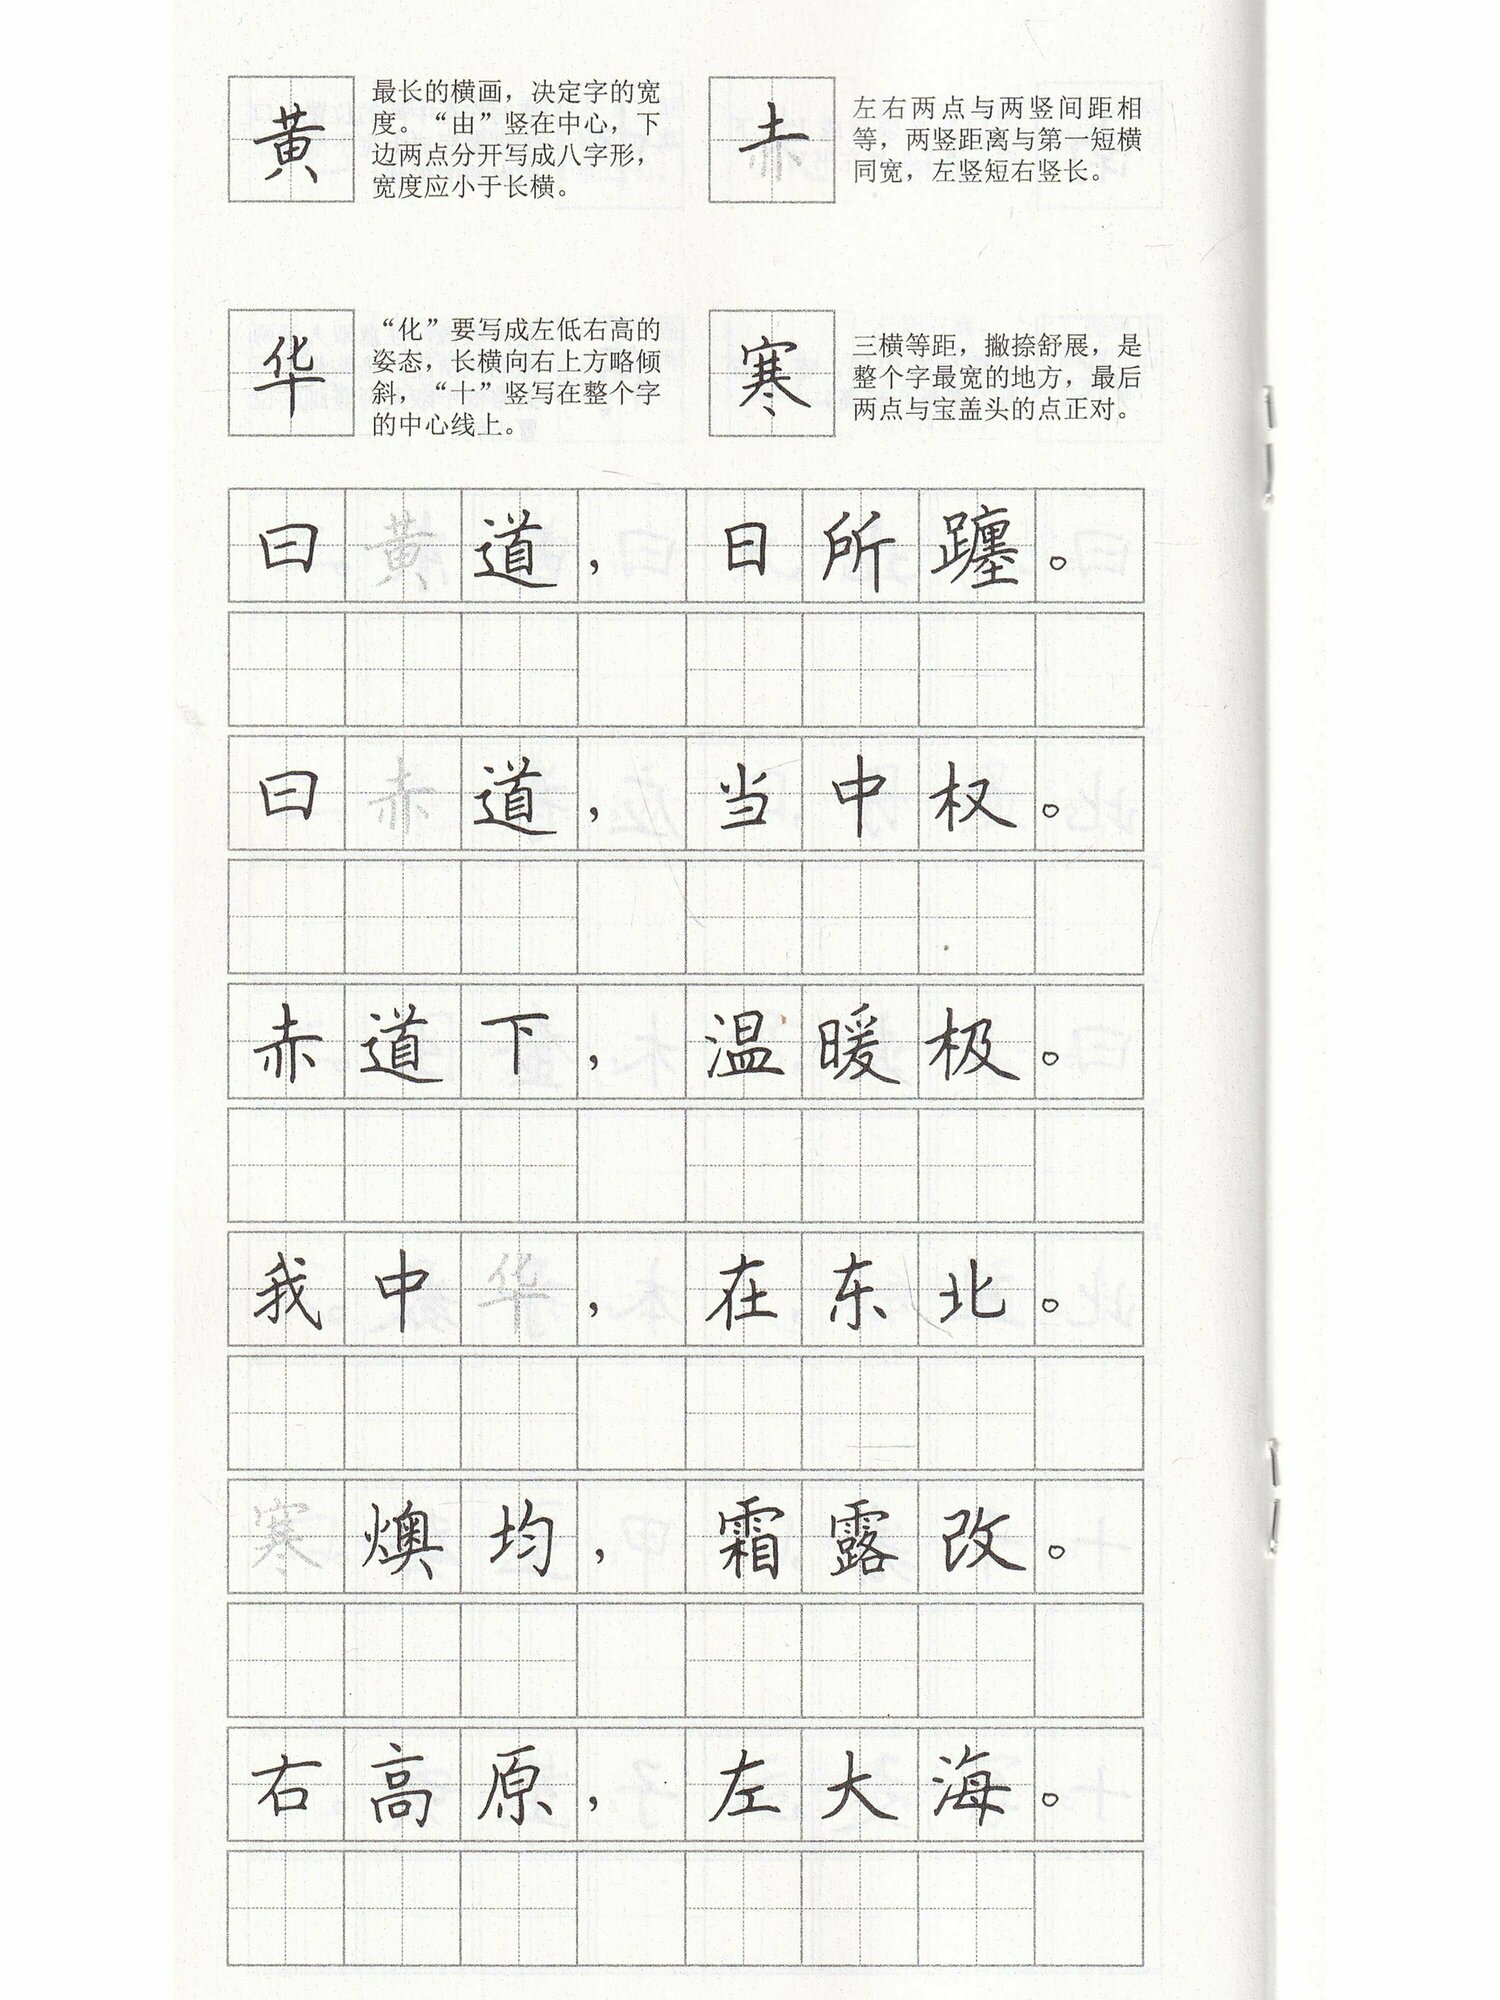 黄
最长的横画，决定字的宽
度。“由”竖在中心，下
边两点分开写成八字形，
宽度应小于长横。
赤
左右两点与两竖间距相
等，两竖距离与第一短横
同宽，左竖短右竖长。
华
“化”要写成左低右高的
姿态，长横向右上方略倾
斜，“十”竖写在整个字
的中心线上。
寒
三横等距，撇捺舒展，是
整个字最宽的地方，最后
两点与宝盖头的点正对。
曰黄道，日所躔。
曰赤道，当中权。
赤道下，温暖极。
我中华，在东北。
寒燠均，霜露改。
右高原，左大海。